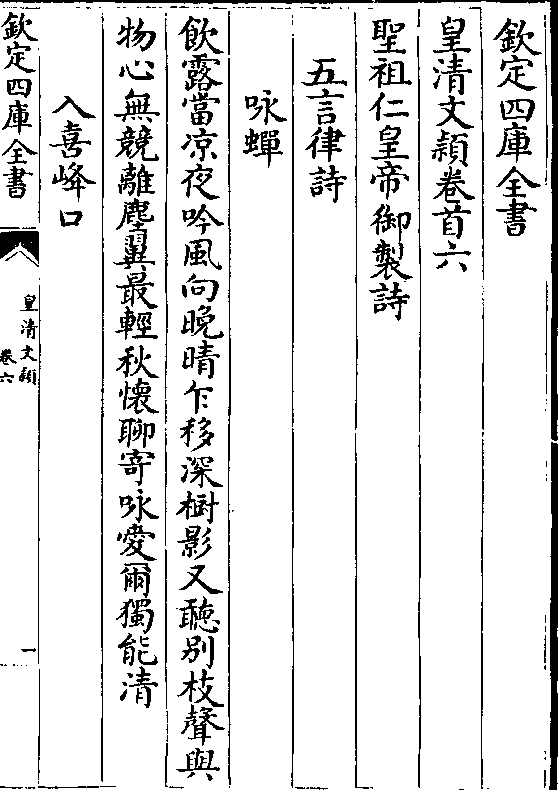 欽定四庫全書
皇清文穎卷首六
聖祖仁皇帝御製詩
五言律詩
咏蟬
飲露當凉夜吟風向晚晴乍移深樹影又聽别枝聲與
物心無競離塵翼最輕秋懷聊寄咏愛爾獨能清
入喜峰口
欽定四庫全書
皇清文穎
卷六
一